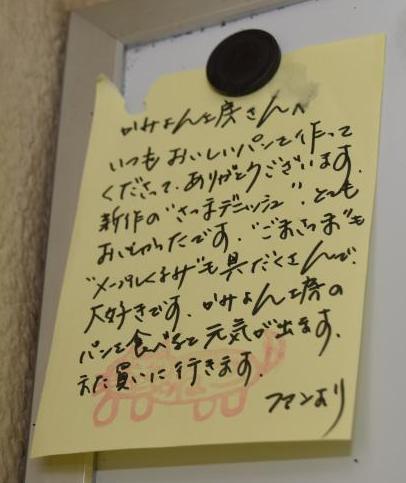 かみよん工房さんへ
いつもおいしいパンを作って
くださって、ありがとうございます。
新作の"さつまデニッシュ"、とても
おいしかったです。"ごまさつま"も
"メープルくるみ"も具だくさんで、
大好きです。かみよん工房の
パンを食べると元気が出ます。
また買いに行きます。
ファンより